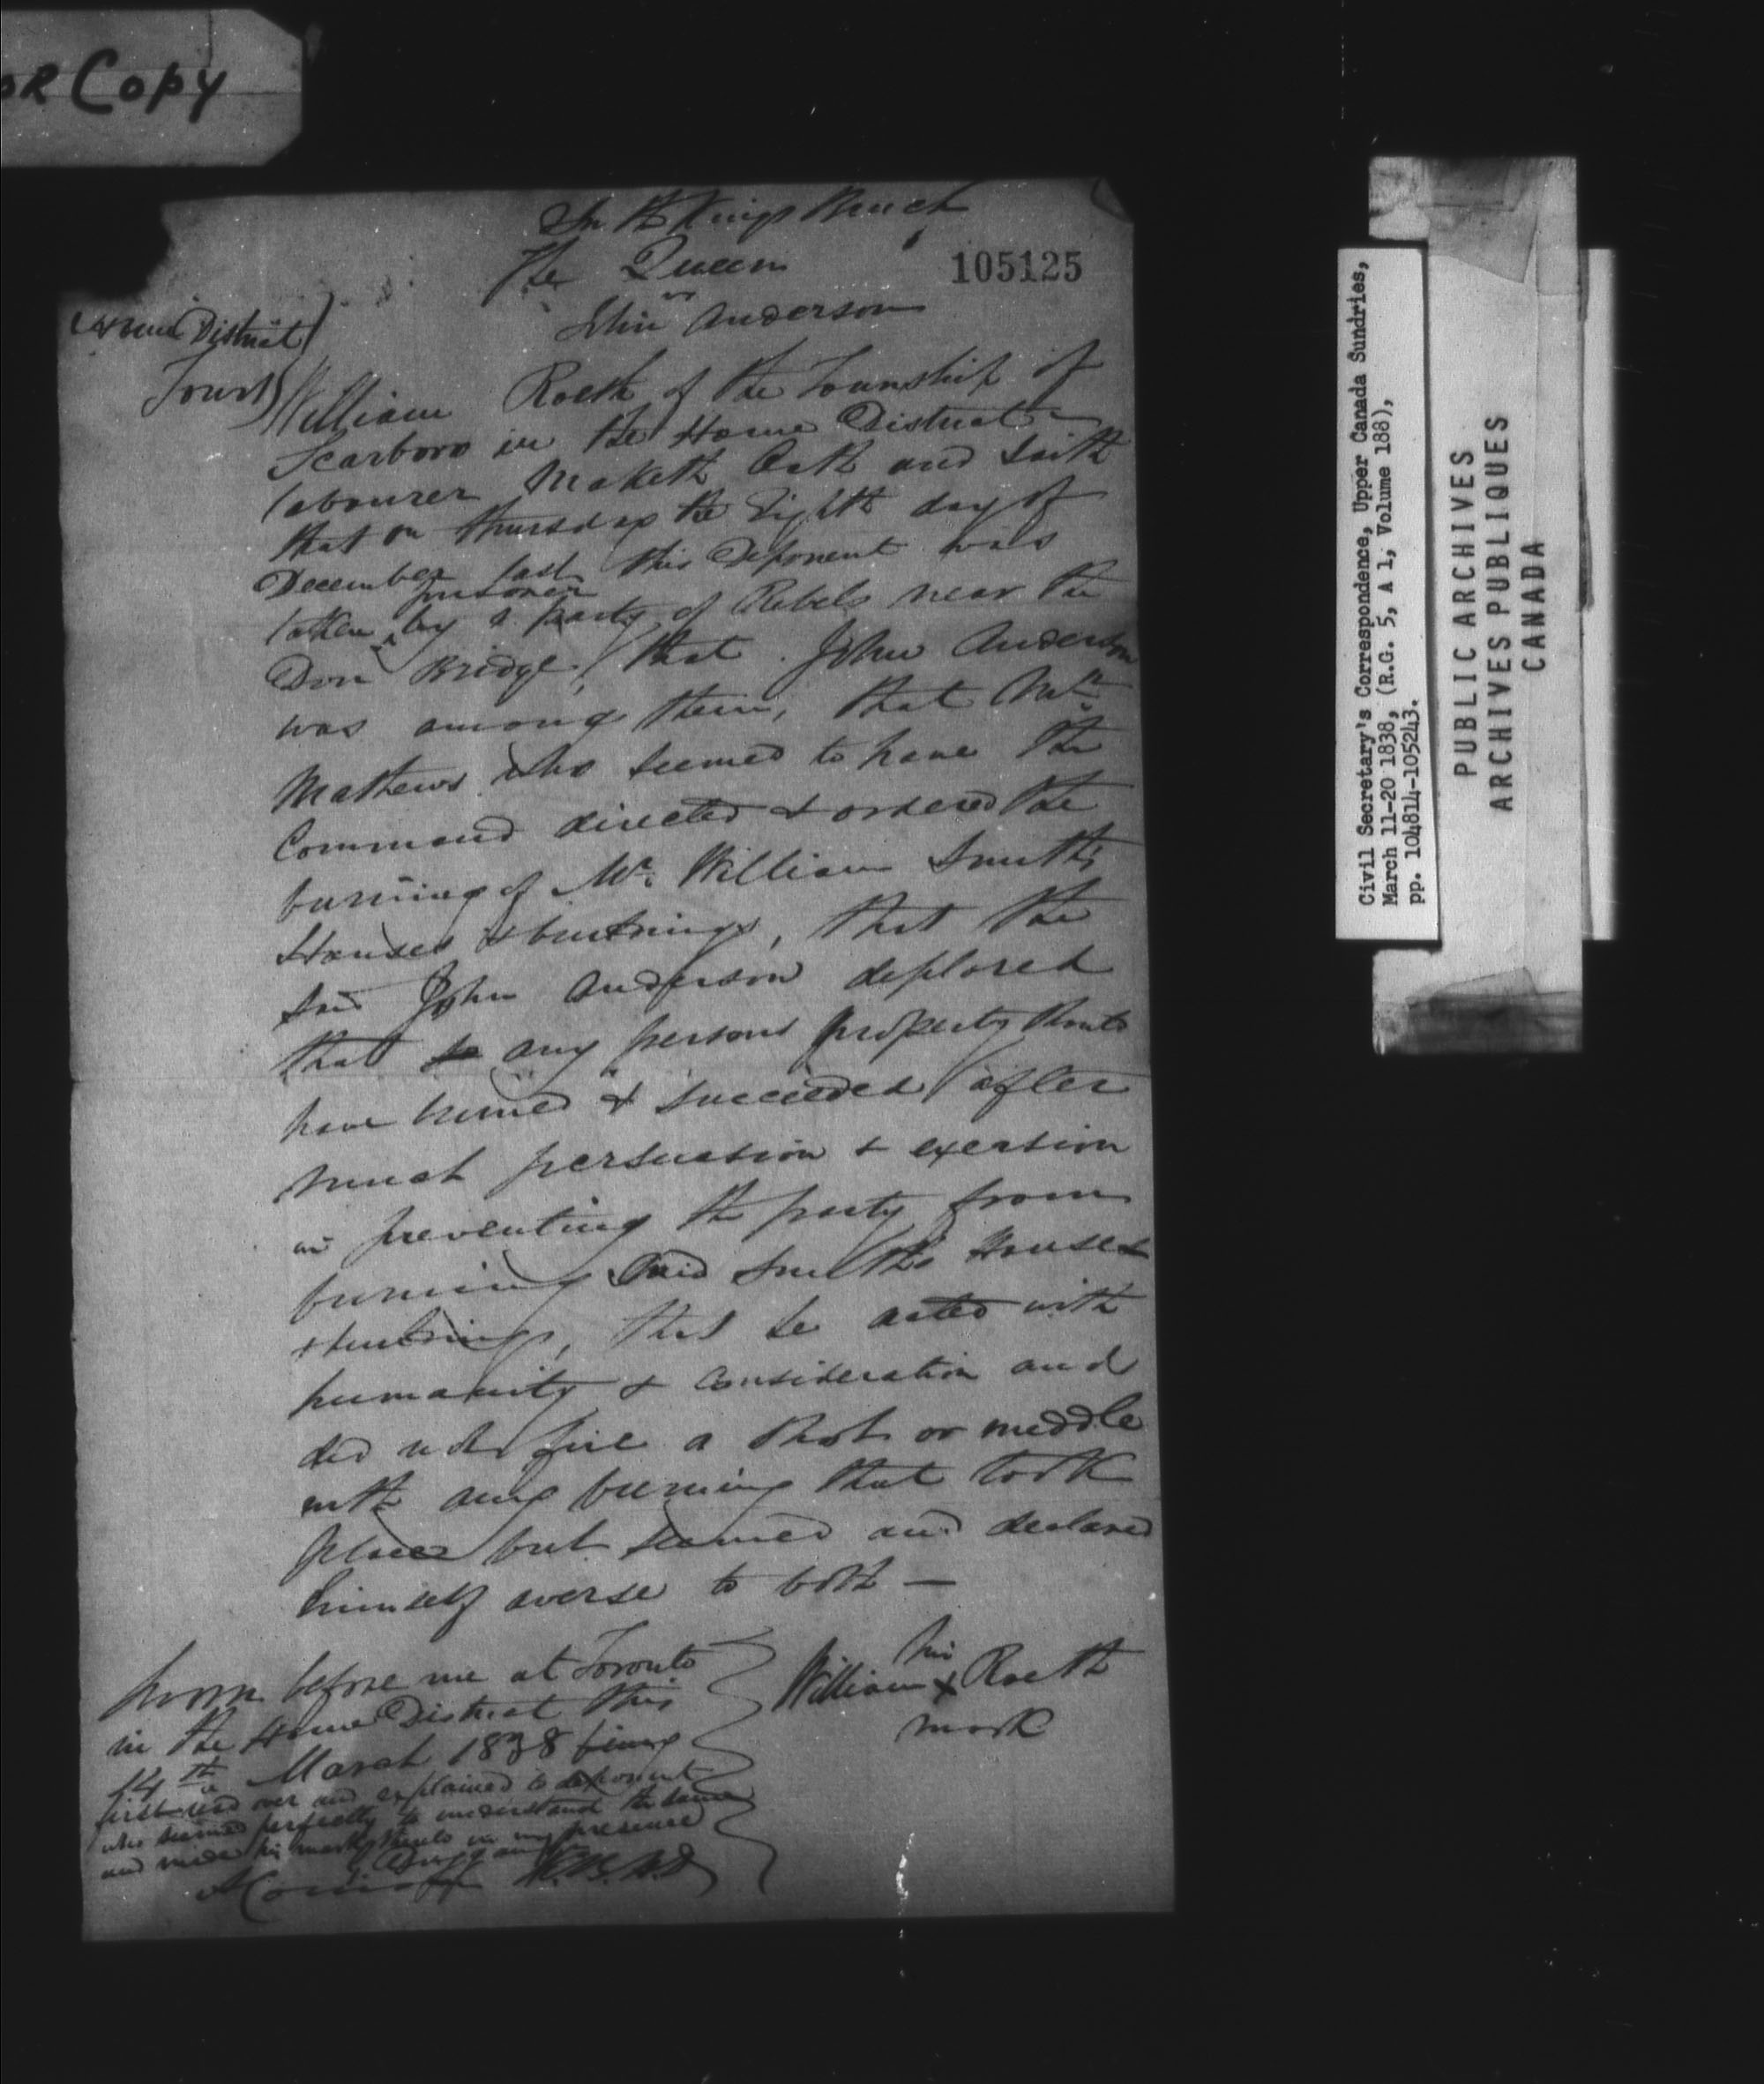 OR Copy
In the Kings Bench
The Queen
105125
vs
John Anderson
Home District
To wit
William Roeth of the Township of
Scarboro in the Home District
labourer Maketh Oath and Saith
that on thursday the Eighth day of
December last this Deponent was
prisoner
taken by a party of Rebels near the
Don Bridge, that John Anderson
was among them, that Mr
Mathews who seemed to have the
Command directed & ordered the
burning of Mr. William Smiths
Houses & buildings, that the
said John Anderson deplored
that any persons property should
have burned & succeeded after
much persuasion & exertion
in preventing the party from
burning said Smiths House &
& buildings, that he acted with
humanity & consideration and
did not fire a Shot or meddle
with any burning that took
place but seemed and declared
himself averse to both —
Sworn before me at Toronto
in the Home District this
14th March 1838 being
first read over and explained to deponent
who seemed perfectly to understand the same
and made his mark thereto in my presence
his
William X Roeth
mark
Civil Secretary's Correspondence, Upper Canada Sundries,
March 11-20 1838, (R.G. 5, A 1, Volume 188),
pp. 104814-105243.
PUBLIC ARCHIVES
ARCHIVES PUBLIQUES
CANADA